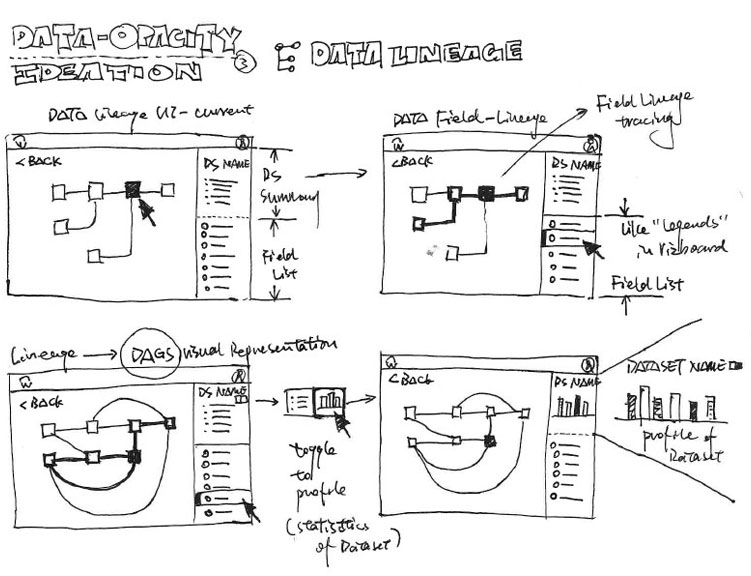 DATA-OPACITY
IDEATION
3
DATA LINEAGE
DATA Lineage UI - current
< BACK
DS NAME
DS
Summary
Field
List
DATA Field-Lineage
Field Lineage
tracing
< BACK
DS NAME
Like "legends"
in Vizboard
Field List
Lineage → DAGS visual Representation
< BACK
DS NAME
toggle
to
profile
(statistics
of Dataset)
< BACK
DS NAME
DATASET NAME
profile of
Dataset